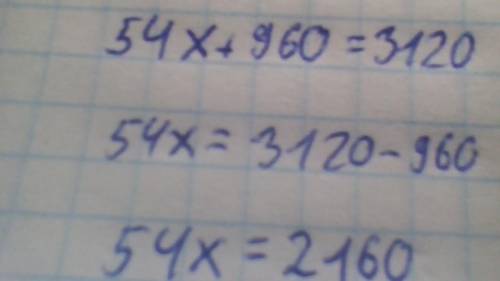 54x+960=3120
54x=3120-960
54x=2160